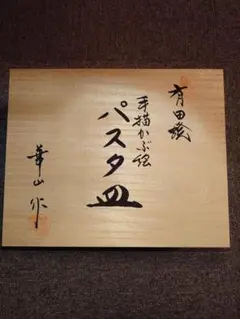 有田焼
手描かぶ絵
パスタ皿
華山作